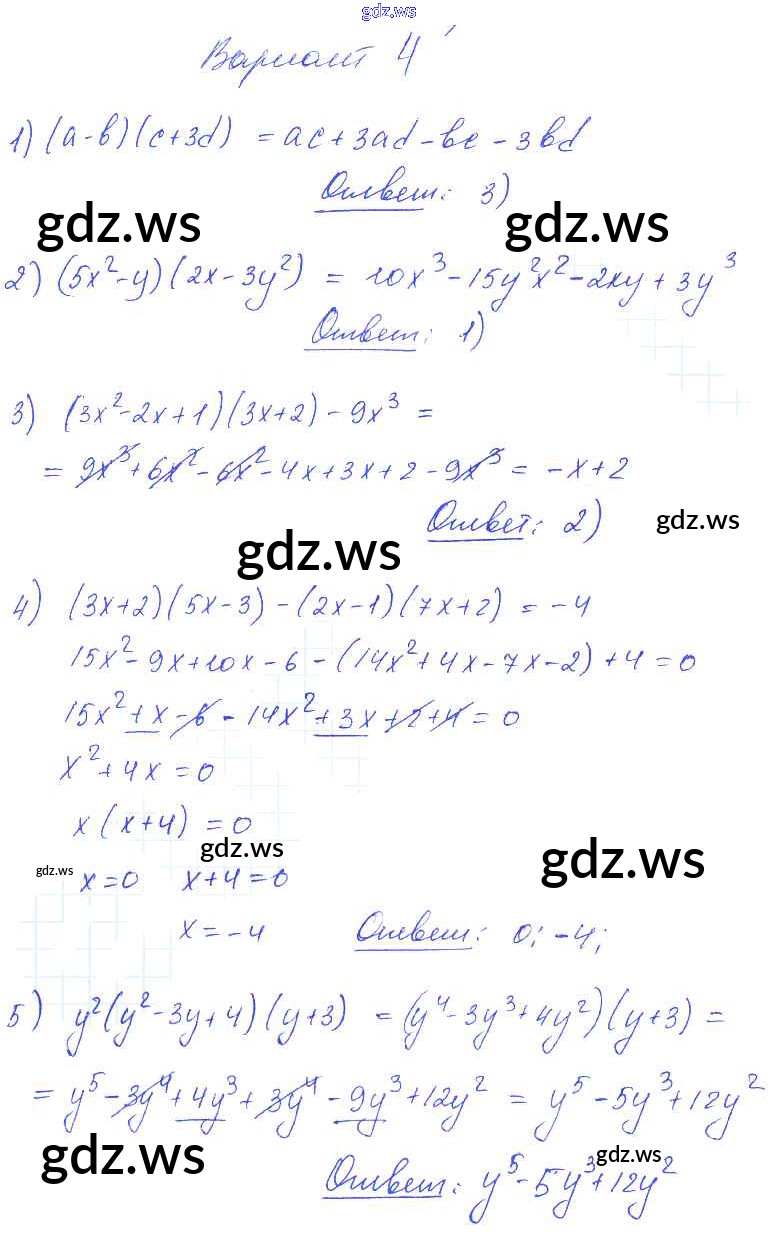 gdz.ws
Вариант 4
1) (a-b)(c+3d) = ac+3ad-bc-3bd
Ответ: 3)
gdz.ws gdz.ws
2) (5x²-y)(2x-3y²) = 10x³-15y²x²-2xy+3y³
Ответ: 1)
3) (3x²-2x+1)(3x+2)-9x³ =
= 9x³+6x²-6x²-4x+3x+2-9x³ = -x+2
Ответ: 2)
gdz.ws
gdz.ws
4) (3x+2)(5x-3)-(2x-1)(7x+2) = -4
15x²-9x+10x-6-(14x²+4x-7x-2)+4=0
15x²+x-6-14x²+3x+2+4=0
x²+4x=0
x(x+4)=0
gdz.ws gdz.ws
gdz.ws
x=0 x+4=0
x=-4 Ответ: 0; -4;
5) y²(y²-3y+4)(y+3) = (y⁴-3y³+4y²)(y+3) =
= y⁵-3y⁴+4y³+3y⁴-9y³+12y² = y⁵-5y³+12y²
gdz.ws gdz.ws
Ответ: y⁵-5y³+12y²